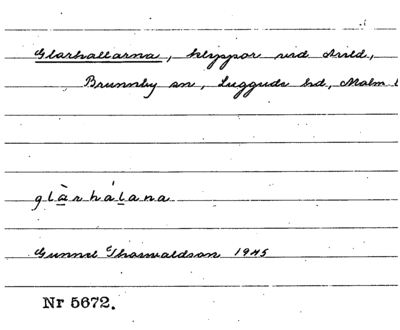 Glarhallarna, klippor vid Arild,
Brunnby sn, Luggude hd, Malm
glàrhálana
Gunnel Thorwaldson 1945
Nr 5672.